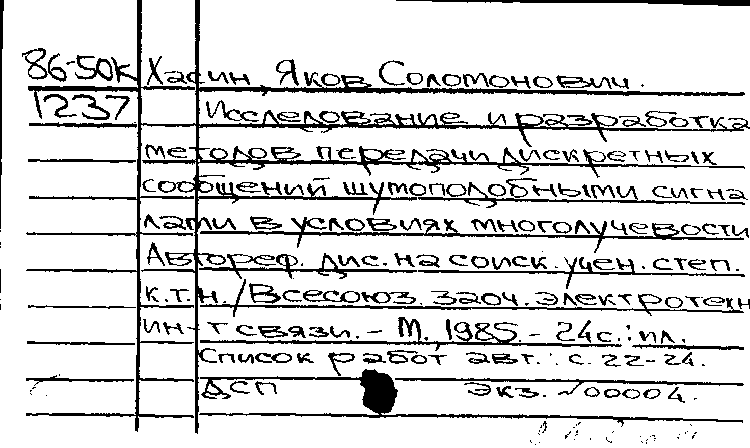 86-50К Хасин, Яков Соломонович.
1237 Исследование и разработка
методов передачи дискретных
сообщений шумоподобными сигна
лами в условиях многолучевости
Автореф. дис. на соиск. учен. степ.
к.т.н. / Всесоюз. заоч. электротехн
ин-т связи. - М., 1985. - 24с.: ил.
Список работ авт.: с. 22-24.
ДСП Экз. №00004.